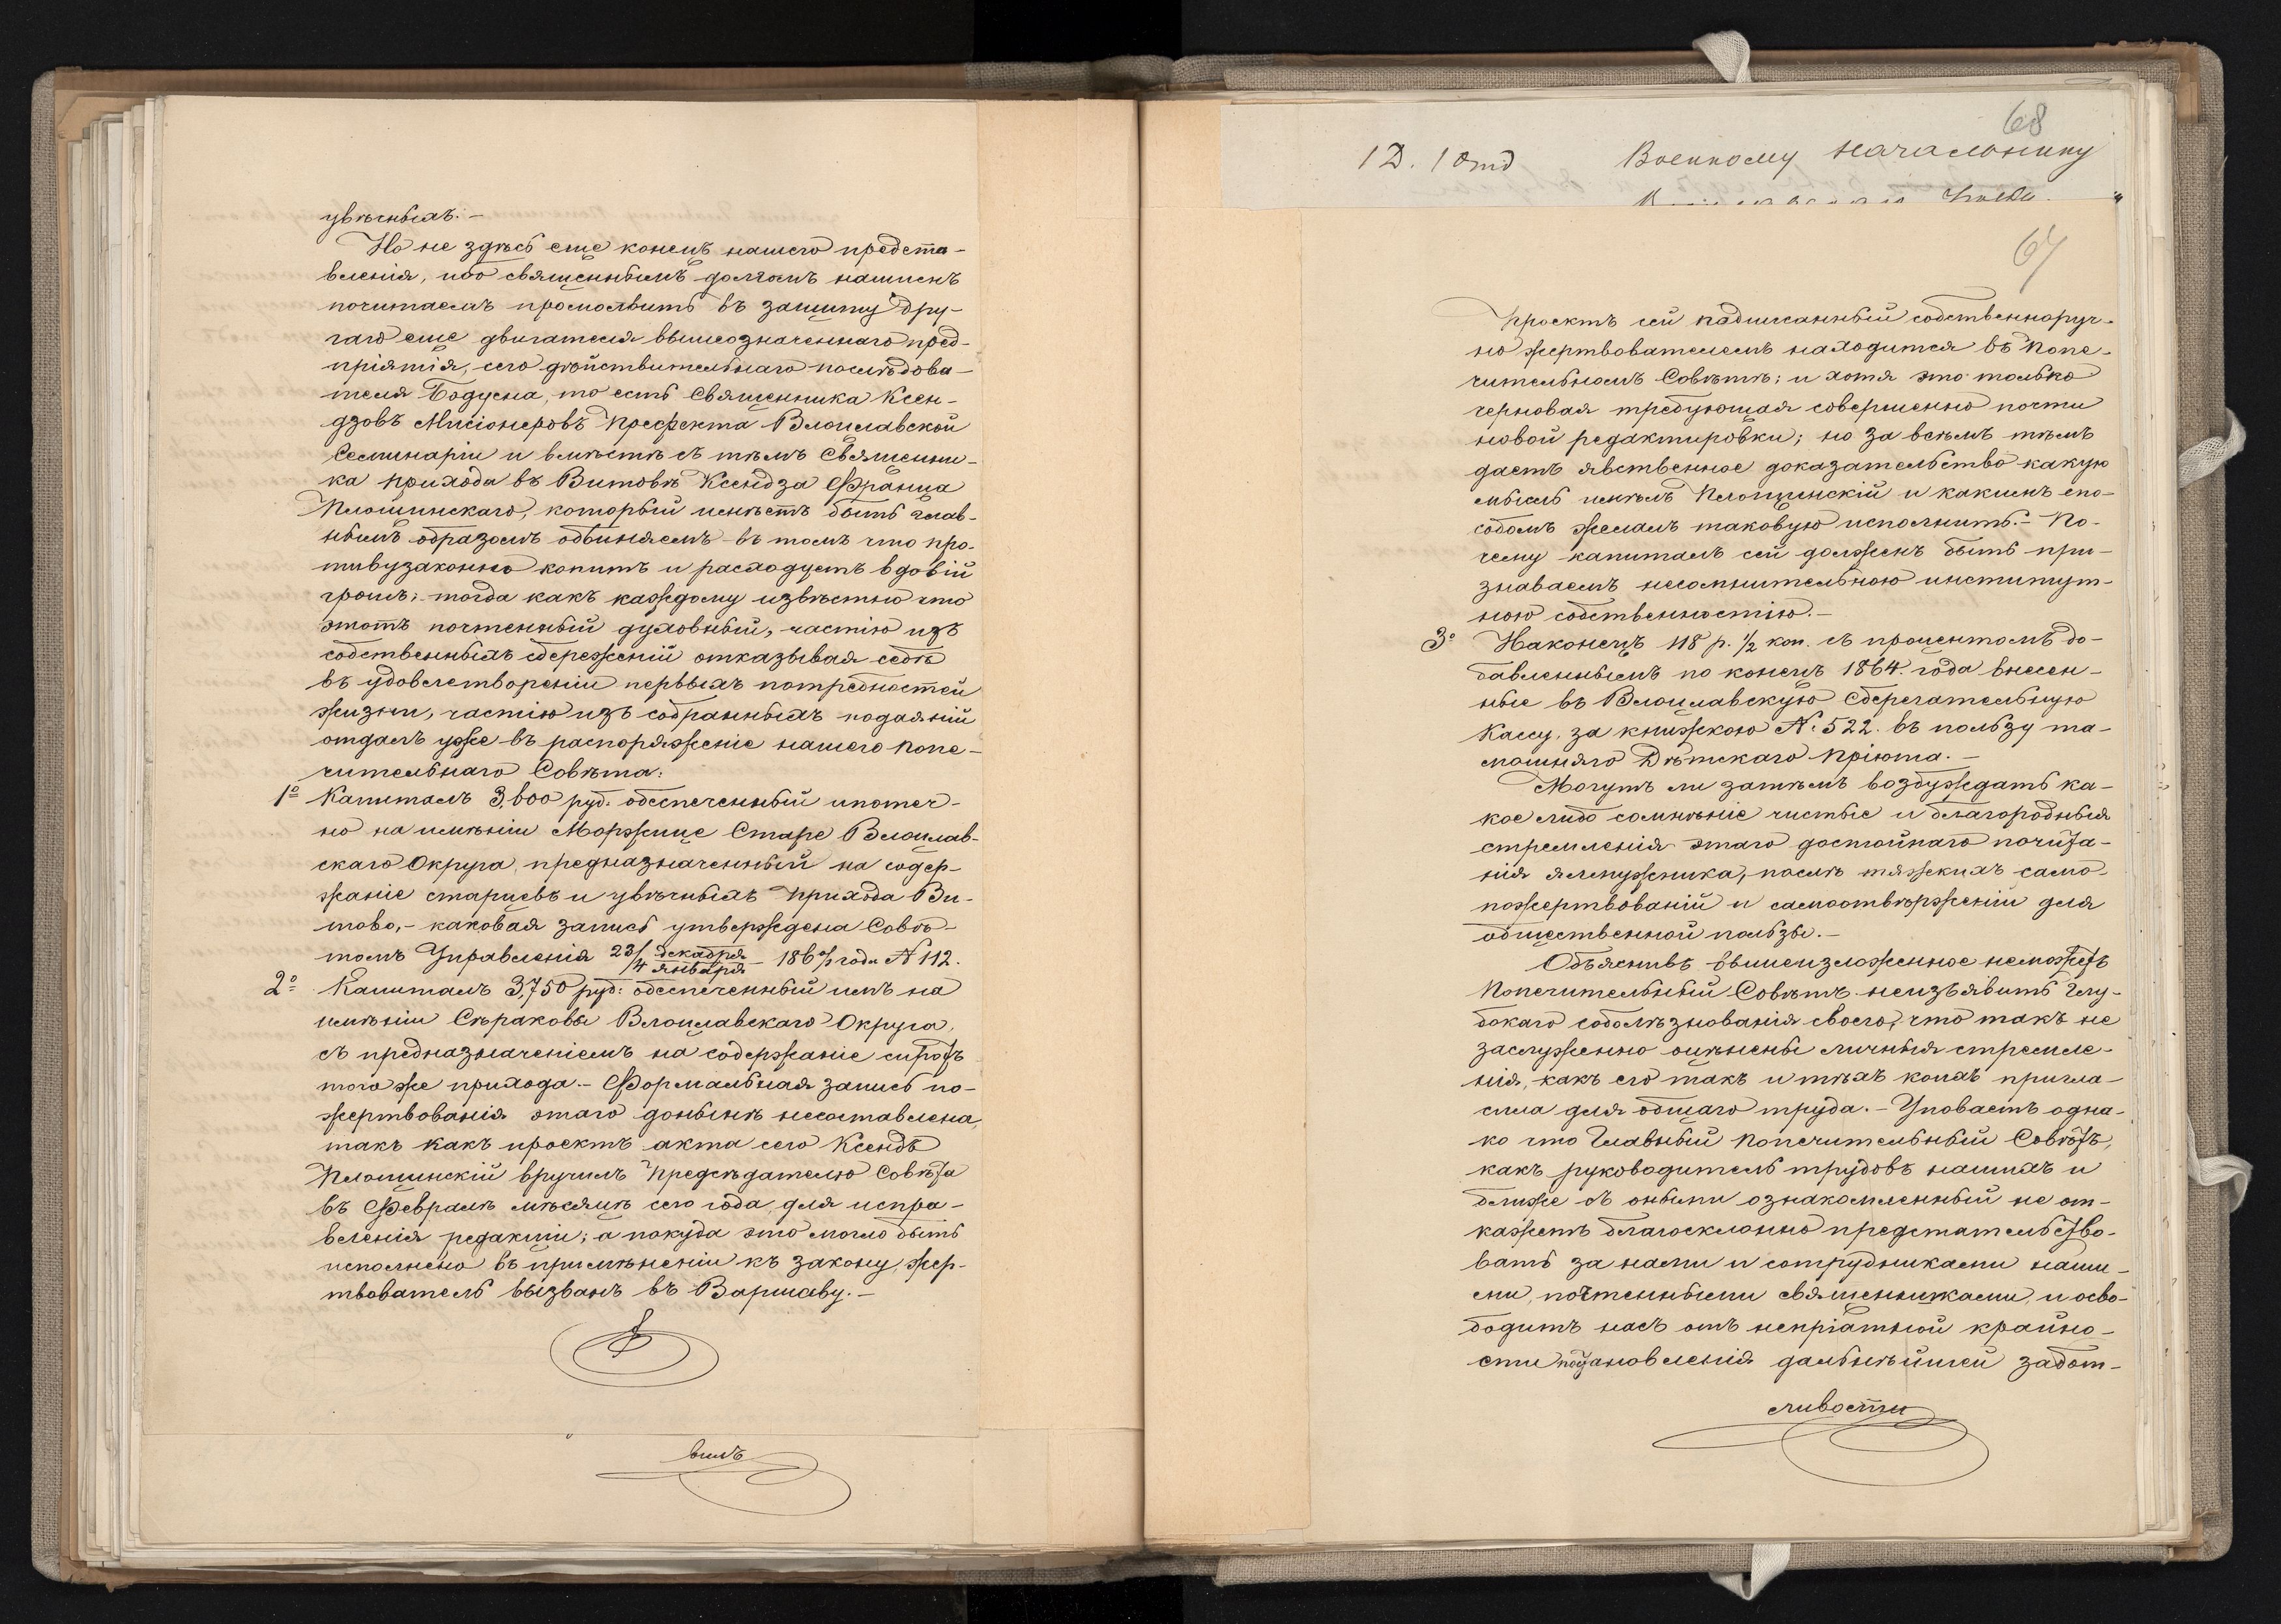 увѣчныхъ.-
Но не здѣсь еще конецъ нашего предста-
вленія, ибо священнымъ долгомъ нашимъ
почитаемъ промолвить въ защиту дру-
гаго еще двигателя вышеозначеннаго пред-
пріятія, сего дѣйствительнаго послѣдова-
теля Бодуена, то есть Священника Ксен-
дзовъ Мисіонеровъ Префекта Влоцлавской
Семинаріи и вмѣстѣ съ тѣмъ Священни-
ка прихода въ Витовѣ Ксендза Франца
Площинскаго, который имѣетъ быть глав-
нымъ образомъ обвиняемъ въ томъ что про-
тивузаконно копитъ и расходуетъ вдовій
грошъ; тогда какъ каждому извѣстно что
этотъ почтенный духовный, частію изъ
собственныхъ сбереженій отказывая себѣ
въ удовлетвореніи первыхъ потребностей
жизни, частію изъ собранныхъ подаяній
отдалъ уже въ распоряженіе нашего Попе-
чительнаго Совѣта:
1º Капиталъ 3,600 руб. обеспеченный ипотеч-
но на имѣніи Моржице Старе Влоцлав-
скаго Округа, предназначенный на содер-
жаніе старцевъ и увѣчныхъ прихода Ви-
тово,- каковая запись утверждена Совѣ-
томъ Управленія 23/4 декабря/января 186 года N 112.
2º Капиталъ 3,750 руб: обеспеченный имъ на
имѣніи Сѣраковы Влоцлавскаго Округа,
съ предназначеніемъ на содержаніе сиротъ
того же прихода.- Формальная запись по-
жертвованія этаго донынѣ несоставлена,
такъ какъ проектъ акта сего Ксендзъ
Площинскій вручилъ Предсѣдателю Совѣта
въ Февралѣ мѣсяцѣ сего года, для испра-
вленія редакціи; а покуда это могло быть
исполнено въ примѣненіи къ закону, жер-
твователь вызванъ въ Варшаву.-
вилъ
68
1 Д. 1 Отд Военному Начальнику
67
Проектъ сей надписанный собственноруч-
но жертвователемъ находится въ Попе-
чительномъ Совѣтѣ; и хотя это только
черновая требующая совершенно почти
новой редактировки; но за всѣмъ тѣмъ
даетъ явственное доказательство какую
мысль имѣлъ Площинскій и какимъ спо-
собомъ желалъ таковую исполнить.- По-
чему капиталъ сей долженъ быть при-
знаваемъ несомнительною институт-
ною собственностію.-
3º Наконецъ 118 р. ½ коп. съ процентомъ до-
бавленнымъ по конецъ 1864. года внесен-
ные въ Влоцлавскую Сберегательную
Кассу, за книжкою N. 522. въ пользу та-
мошняго Дѣтскаго Пріюта.-
Могутъ ли затѣмъ возбуждать ка-
кое либо сомнѣніе чистые и благородныя
стремленія этаго достойнаго почита-
нія ялмужника, послѣ тяжкихъ само-
пожертвованій и самоотвѣрженій для
общественной пользы.-
Объяснивъ вышеизложенное неможетъ
Попечительный Совѣтъ неизъявить глу-
бокаго соболѣзнованія своего, что такъ не
заслуженно оцѣнены личныя стремле-
нія, какъ его такъ и тѣхъ коихъ пригла-
сила для общаго труда.- Уповаетъ одна-
ко что Главный Попечительный Совѣтъ,
какъ руководитель трудовъ нашихъ и
ближе съ оными ознакомленный не от-
кажетъ благосклонно предстательство-
вать за нами и сотрудниками наши-
ми, почтенными священниками, и осво-
бодитъ насъ отъ непріатной крайно-
сти постановленія дальнѣйшей забот-
ливости